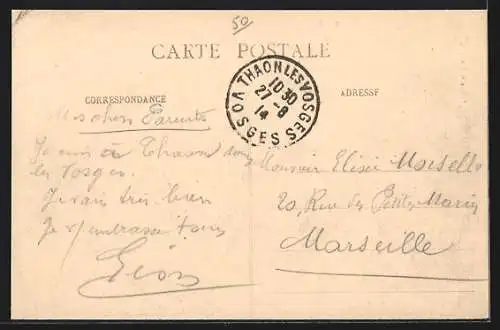 50
CARTE POSTALE
THAON LES VOSGES
10 30
27 - 8
14
VOSGES
CORRESPONDANCE
ADRESSE
Mes chers Parents
Je suis à Thaon dans
les Vosges.
Je vais très bien
Je v/ embrasse tous
Monsieur Elisée
20, Rue des Petites Maries
Marseille